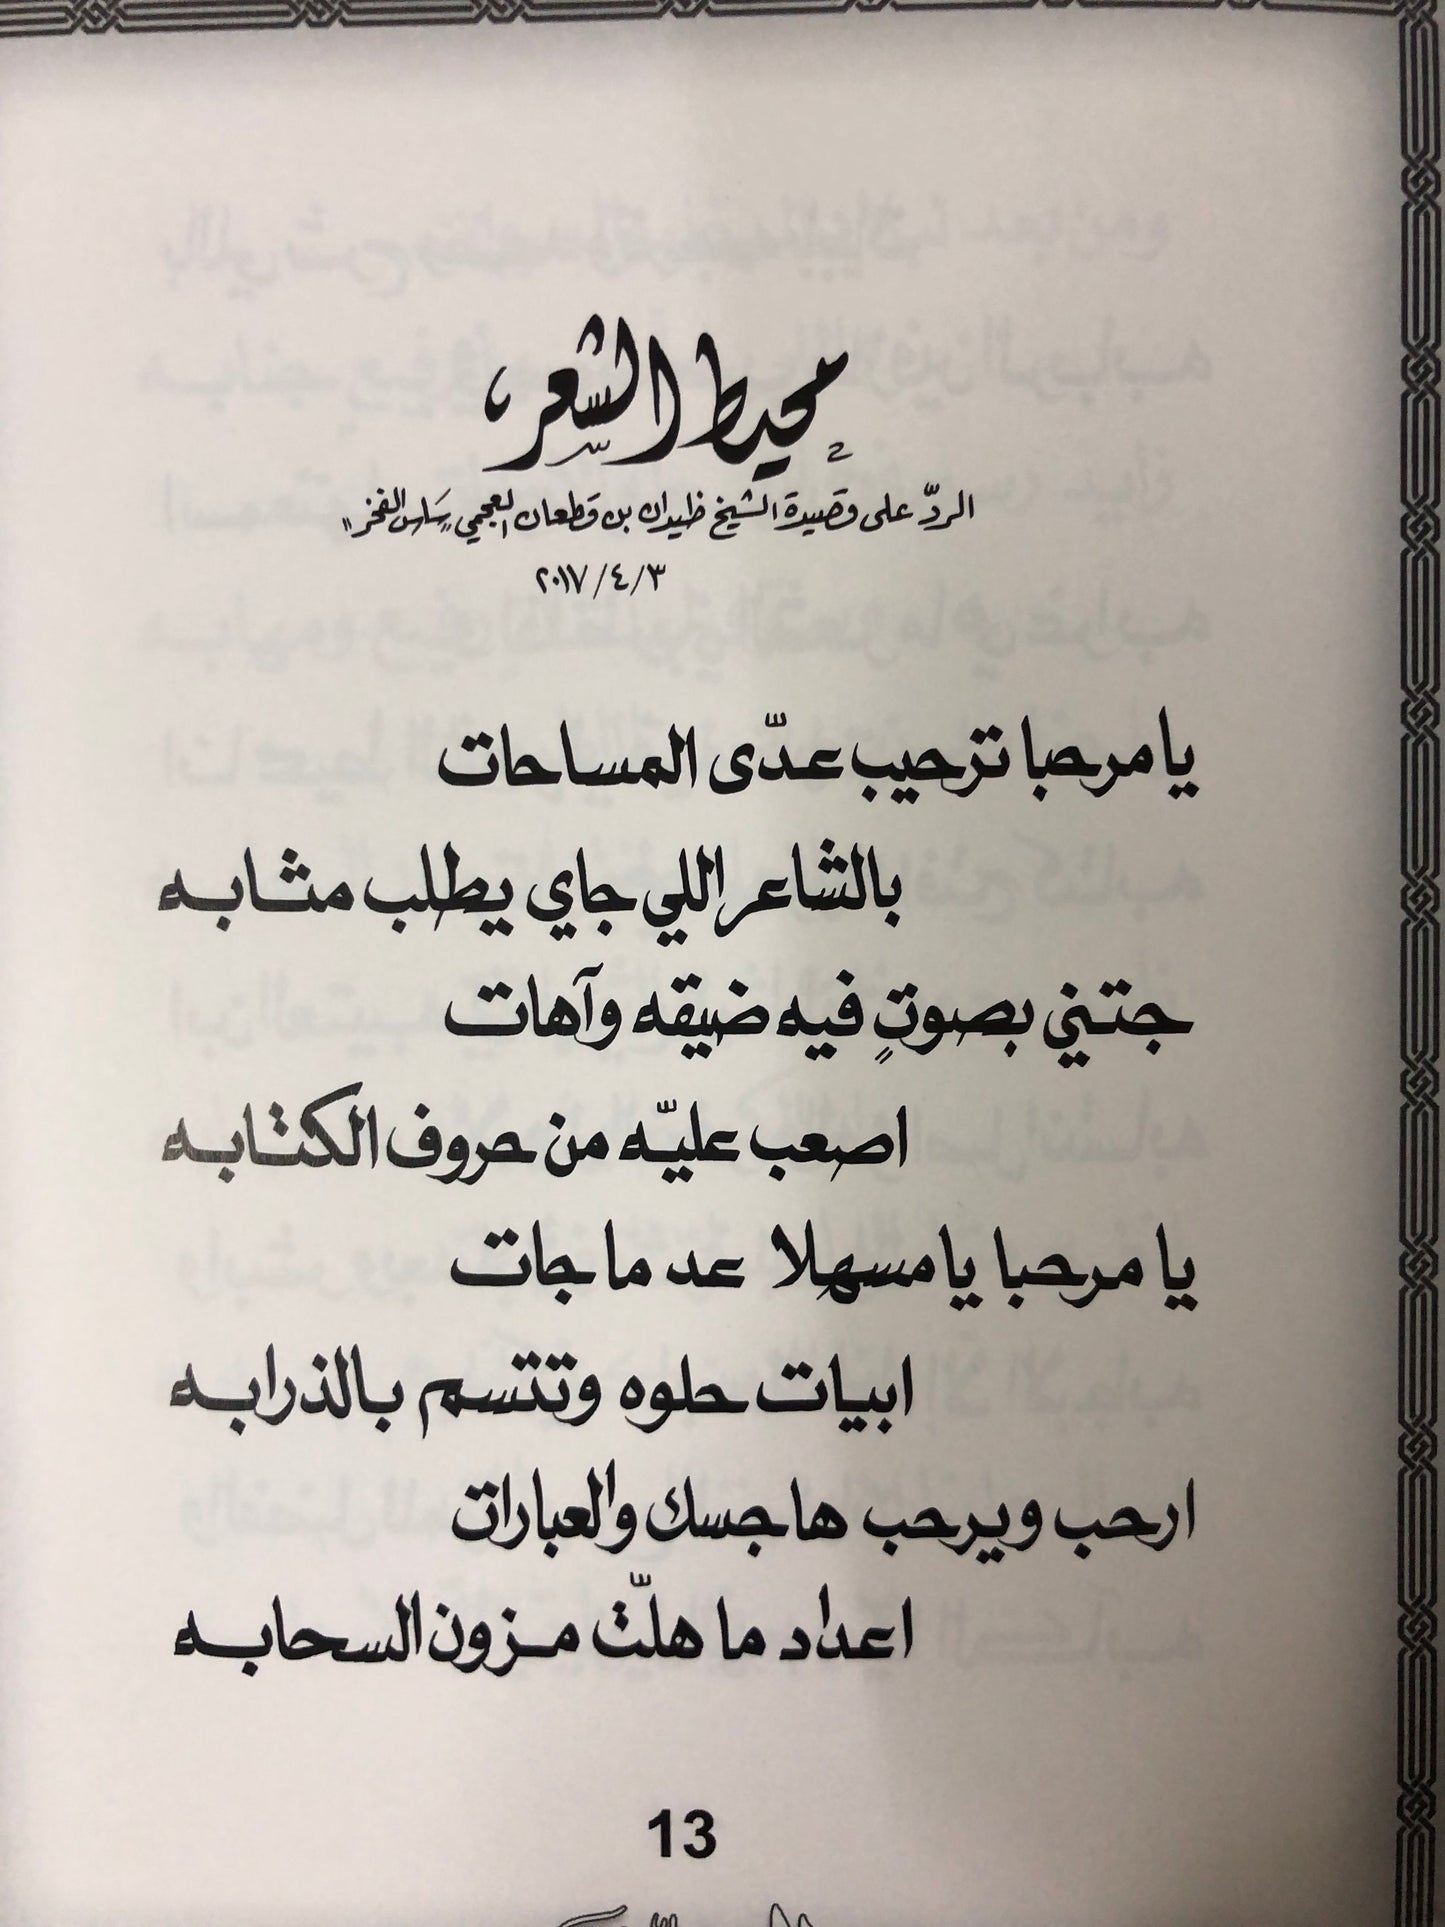 محيط الشعر
الردّ على قصيدة الشيخ ظيدان بن قطعان العجمي "ساس الفخر"
٢٠١٧/٤/٣
يا مرحبا ترحيب عدّى المساحات
بالشاعر اللي جاي يطلب مثابه
جتني بصوتٍ فيه ضيقه وآهات
اصعب عليّه من حروف الكتابه
يا مرحبا يا مسهلا عد ما جات
ابيات حلوه وتتسم بالذرابه
ارحب ويرحب هاجسك والعبارات
اعداد ما هلّت مزون السحابه
13